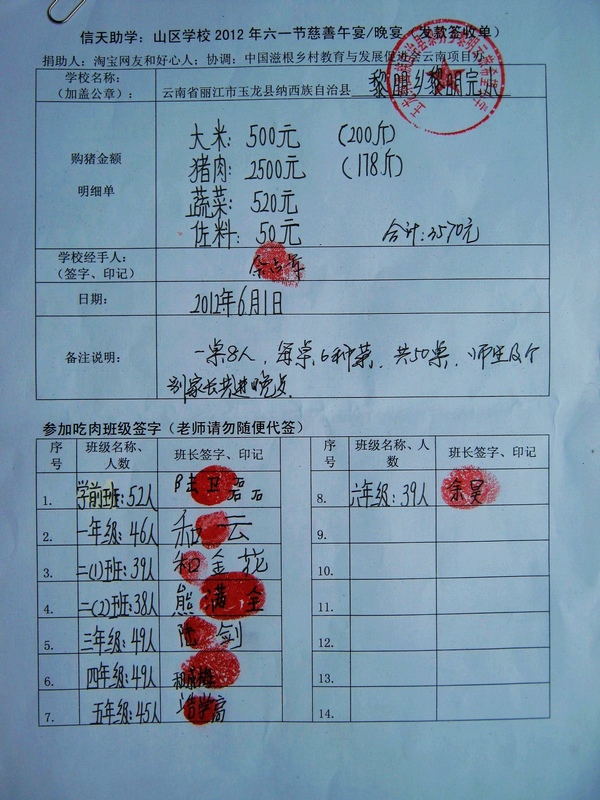 信天助学：山区学校 2012 年六一节慈善午宴/晚宴（发款签收单）
捐助人：淘宝网友和好心人；协调：中国滋根乡村教育与发展促进会云南项目办
学校名称：
（加盖公章）：
云南省丽江市玉龙县纳西族自治县 黎明乡黎明完小
购猪金额
明细单
大米：500元 （200斤）
猪肉：2500元 （178斤）
蔬菜：520元
佐料：50元 合计：3570元
学校经手人：
（签字、印记）
日期： 2012年6月1日
备注说明： 一桌8人，每桌6种菜，共50桌，师生及个
别家长共进晚点
参加吃肉班级签字（老师请勿随便代签）
序号 班级名称、人数 班长签字、印记 序号 班级名称、人数 班长签字、印记
1. 学前班：52人 陆
8. 六年级：39人 余昊
2. 一年级：46人 和云
9.
3. 二(1)班：39人 和金花
10.
4. 二(2)班：38人 熊满全
11.
5. 三年级：49人 陆剑
12.
6. 四年级：49人
13.
7. 五年级：45人 学高
14.